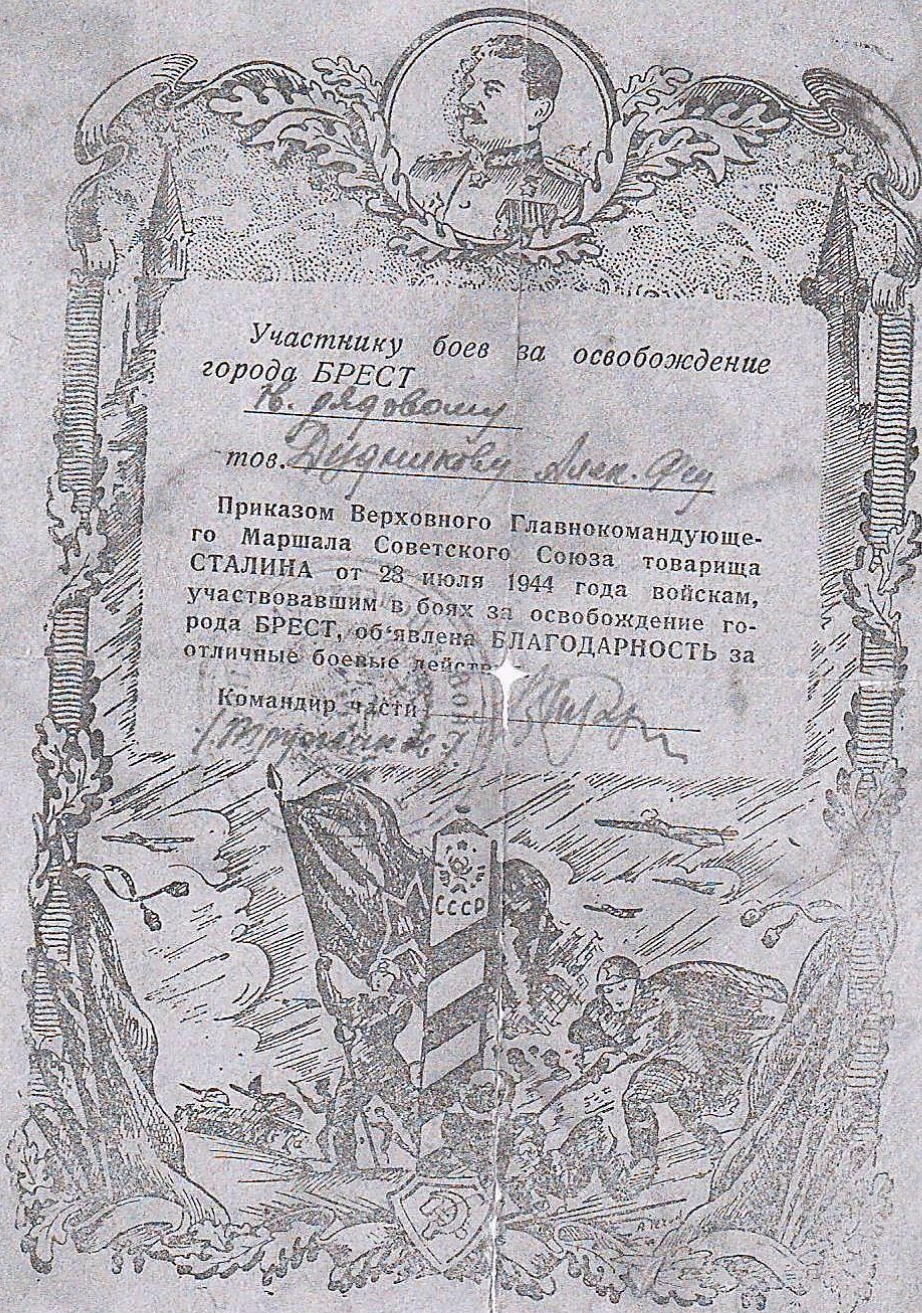 Участнику боев за освобождение
города БРЕСТ
рядовому
тов. Дудникову
Приказом Верховного Главнокомандующе-
го Маршала Советского Союза товарища
СТАЛИНА от 28 июля 1944 года войскам,
участвовавшим в боях за освобождение го-
рода БРЕСТ, об‘явлена БЛАГОДАРНОСТЬ за
отличные боевые
Командир части
СССР